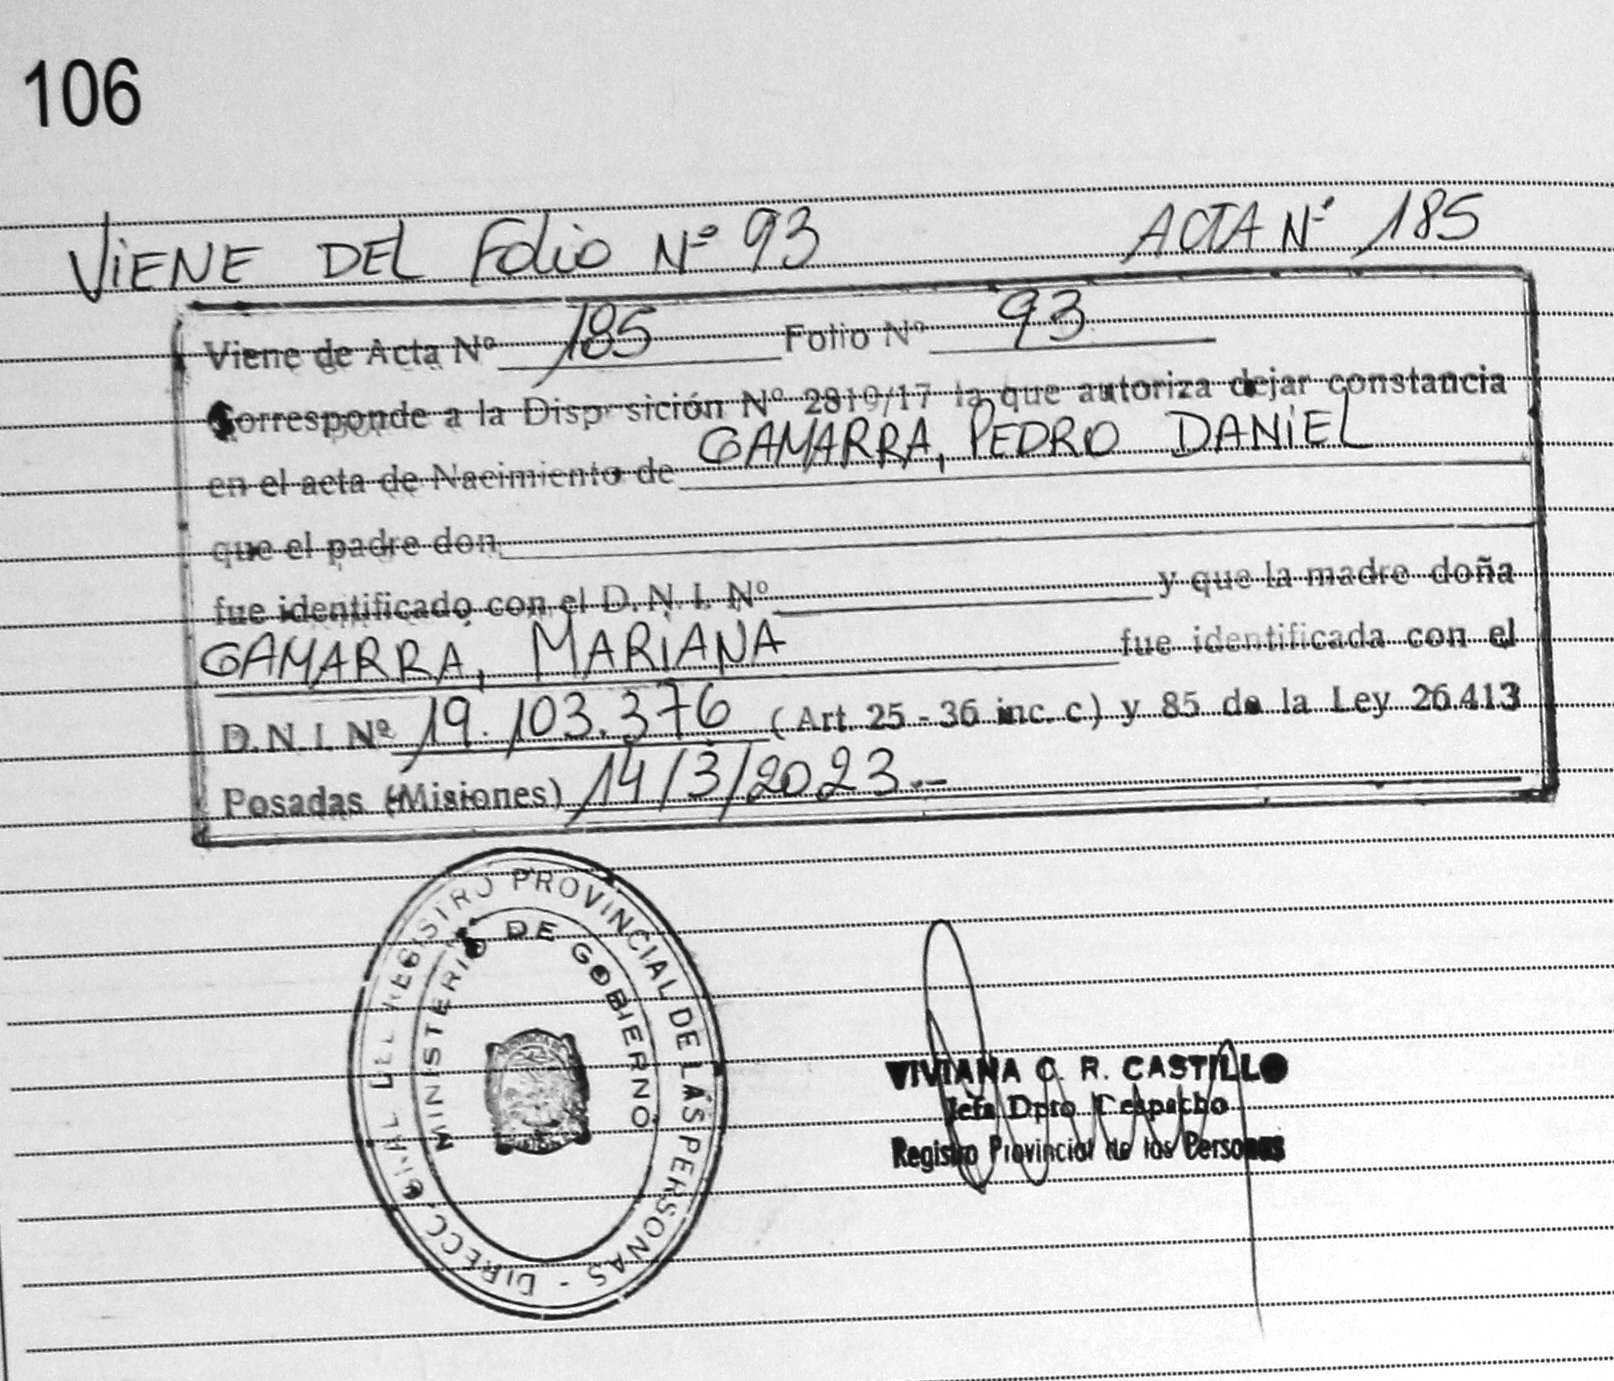 106
VIENE DEL FOLIO Nº 93 ACTA Nº 185
Viene de Acta Nº 185 Folio Nº 93
Corresponde a la Disposición Nº 2810/17 la que autoriza dejar constancia
en el acta de Nacimiento de GAMARRA, PEDRO DANIEL
que el padre don
fue identificado con el D. N. I. Nº y que la madre doña
GAMARRA, MARIANA fue identificada con el
D. N. I. Nº 19.103.376 (Art. 25 - 36 inc. c) y 85 de la Ley 26.413
Posadas (Misiones) 14/3/2023.-
DIRECC. GRAL DEL REGISTRO PROVINCIAL DE LAS PERSONAS -
MINISTERIO DE GOBIERNO
VIVIANA C. R. CASTILLO
Jefa Dpto Despacho
Registro Provincial de las Personas